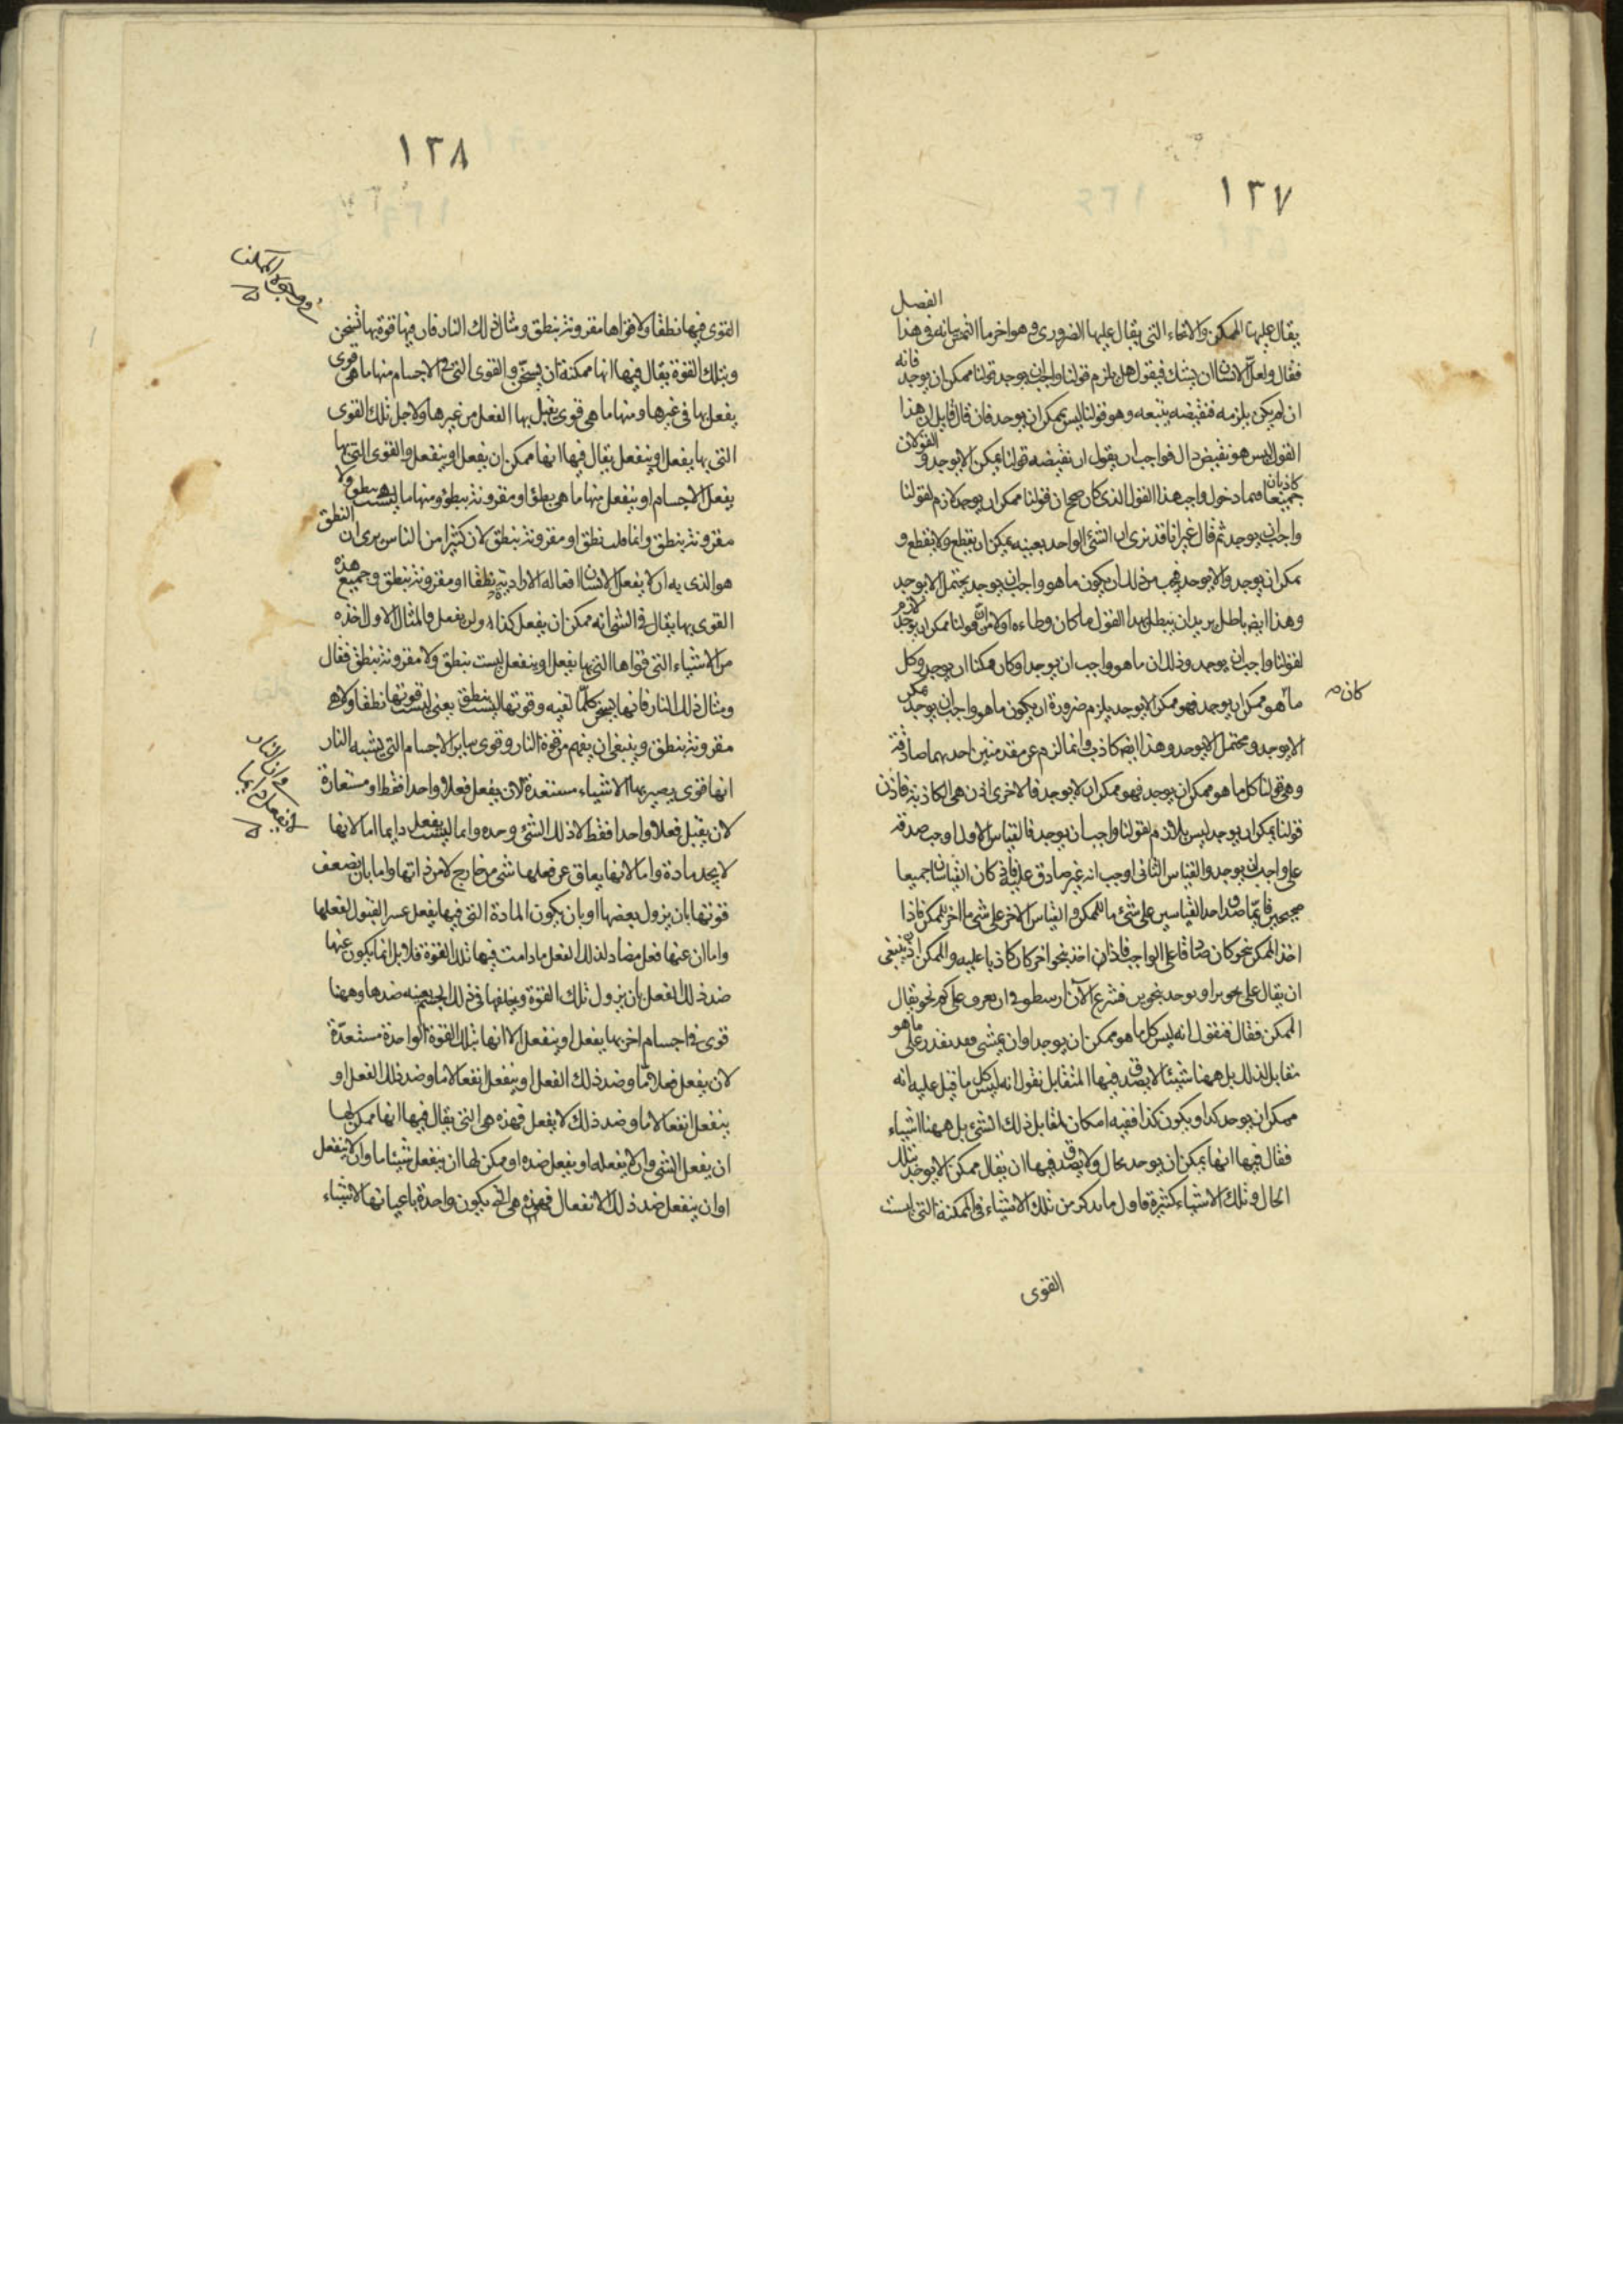 ١٣٧
الفصل
يقال عليها الممكن والانحاء التى يقال عليها الضرورى وهو اخر ما التمس بيانه فى هذا
فقال ولعل الانسان ان يشك فيقول هل يلزم قولنا واجب ان يوجد قولنا ممكن ان يوجد فانه
ان لم يكن يلزمه فنقيضه يتبعه وهو قولنا ليس يمكن ان يوجد فان قال قايل ان هذا
القول ليس هو نقيض ذاك فواجب ان يقول ان نقيضه قولنا يمكن الا يوجد و القولان
جميعا كاذبان فيما دخول واجب هذا القول الذى كان صحح ان قولنا ممكن ان يوجد لازم لقولنا
واجب ان يوجد ثم قال غير انا قد نرى ان الشئ الواحد بعينه يمكن ان يقطع ولا يقطع و
يمكن ان يوجد والا يوجد فيجب من ذلك ان يكون ما هو واجب ان يوجد يحتمل الا يوجد
وهذا ايضا باطل يريد ان يبطل بهذا القول ما كان وطاءه اولا من ان قولنا ممكن ان يوجد لازم
لقولنا واجب ان يوجد وذلك ان ما هو واجب ان يوجد لو كان ممكنا ان يوجد وكل
كان م
ما هو ممكن ان يوجد فهو ممكن الا يوجد يلزم ضرورة ان يكون ما هو واجب ان يوجد ممكن
الا يوجد ومحتمل الا يوجد وهذا ايضا كاذب وانما لزم عن مقدمتين احديهما صادقة
وهى قولنا كل ما هو ممكن ان يوجد فهو ممكن ان لا يوجد فالاخرى اذن هى الكاذبة فاذن
قولنا يمكن ان يوجد ليس بلازم لقولنا واجب ان يوجد فالقياس الاول اوجب صدقه
على واجب ان يوجد والقياس الثانى اوجب انه غير صادق عليه فاذ كان القياسان جميعا
صحيحين فانما صدق احد القياسين على شئ ما للممكن والقياس الاخر على شئ ما اخر للممكن فاذا
اخذ الممكن بنحو كان صادقا على الواجب فاذا اخذ بنحو اخر كان كاذبا عليه والممكن اذن ينبغى
ان يقال على نحوين او يوجد بنحوين فشرع الآن ارسطو فى ان يعرف على كم نحو يقال
الممكن فقال فنقول انه ليس كل ما هو ممكن ان يوجد او ان يمشى فقد يقدر على ما هو
مقابل لذلك بل ههنا شيئا لا يصدق فيها المتقابل نقول انه ليس كل ما قيل عليه انه
ممكن ان يوجد كذا او يكون كذا ففيه امكان لمقابل ذلك الشئ بل ههنا اشياء
فقال فيها انها يمكن ان يوجد بحال ولا يصدق فيها ان يقال ممكن الا يوجد بتلك
الحال وتلك الاشياء كثيرة فاول ما يذكر من تلك الاشياء فى الممكنة التى ليست
القوى
١٣٨
القوى فيها نطقا ولا قواها مقرونة بنطق ومثال ذلك النار فان فيها قوة بها تسخن
وبتلك القوة يقال فيها انها ممكنة ان يسخن والقوى التى فى الاجسام منها ما هى قوى
يفعل بها فى غيرها ومنها ما هى قوى يقبل بها الفعل من غيرها ولاجل تلك القوى
التى بها يفعل او ينفعل يقال فيها انها ممكن ان يفعل او ينفعل والقوى التى بها
يفعل الاجسام او ينفعل منها ما هى نطق او مقرونة بنطق ومنها ما ليست بنطق ولا
مقرونة بنطق وانما قلت نطق او مقرونة بنطق لان كثيرا من الناس يرى ان النطق
هو الذى به ان لا يفعل الانسان افعاله الارادية نطقا او مقرونة بنطق وجميع هذه
القوى بها يقال فى الشئ انه ممكن ان يفعل كذا ولن يفعل والمثال الاول اخذه
من الاشياء التى قواها التى بها يفعل او ينفعل ليست بنطق ولا مقرونة بنطق فقال
ومثال ذلك النار فانها تسخن كلما تلقيه وقوتها ليست بنطق يعنى ليست قوتها نطقا ولا هى
مقرونة بنطق وينبغى ان يفهم من قوة النار وقوى ساير الاجسام التى يشبه النار
انها قوى يصير بها الاشياء مستعدة لان يفعل فعلا واحدا فقط او مستعارة
لان يقبل فعلا واحدا فقط لا ذلك الشئ وحده وانما ليست يفعل دايما اما لانها
لا يجد مادة واما لانها يعاق عن فعلها شئ من خارج لا من ذاتها واما بان يضعف
قوتها بان يزول بعضها او بان يكون المادة التى فيها يفعل عسر القبول لفعلها
واما ان عنها فعل مضاد لذلك الفعل ما دامت فيها تلك القوة فلا بل انما يكون عنها
ضد ذلك الفعل بان يزول تلك القوة ويخلفها فى ذلك الجسم بعينه ضدها وههنا
قوى فى اجسام اخر بها يفعل او ينفعل الا انها بتلك القوة الواحدة مستعدة
لان يفعل فعلا ما وضد ذلك الفعل او ينفعل انفعالا ما وضد ذلك الفعل او
ينفعل انفعالا ما وضد ذلك لا يفعل فهذه هى التى يقال فيها انها ممكن لها
ان يفعل الشئ وان لا يفعله او يفعل ضده او ممكن لها ان ينفعل شيئا ما وان لا ينفعل
او ان ينفعل ضد ذلك الانفعال فهذه هى التى يكون واحدة باعيانها لاشياء